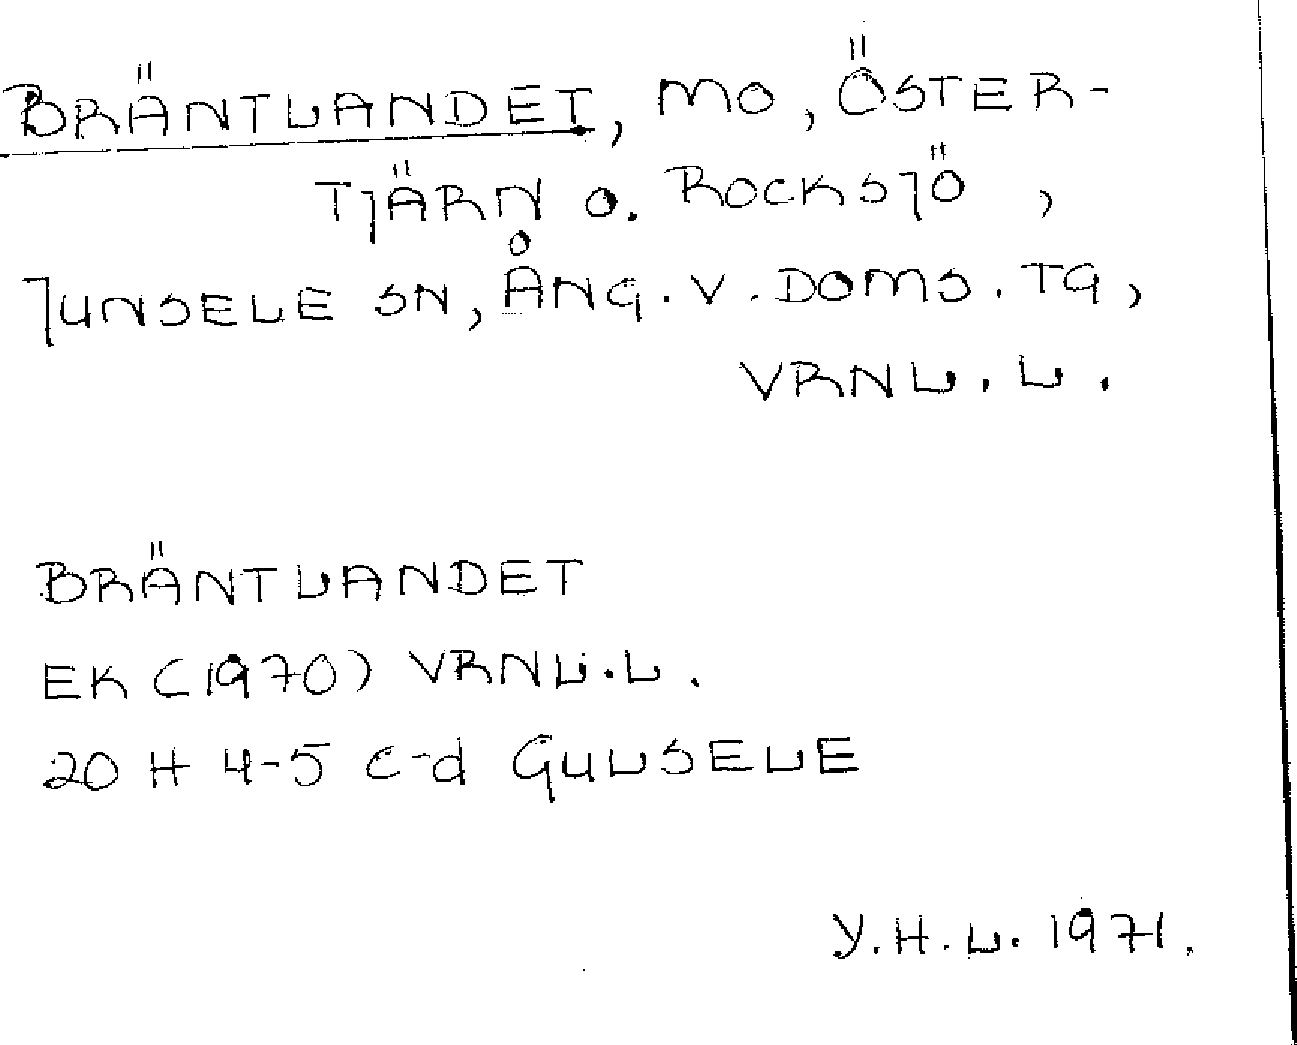 BRÄNTLANDET, MO, ÖSTER-
TJÄRN O. ROCKSJÖ,
JUNSELE SN, ÅNG. V. DOMS. TG,
VRNL. L.
BRÄNTLANDET
EK (1970) VRNL. L.
20 H 4-5 c-d GULSELE
Y.H.L. 1971.